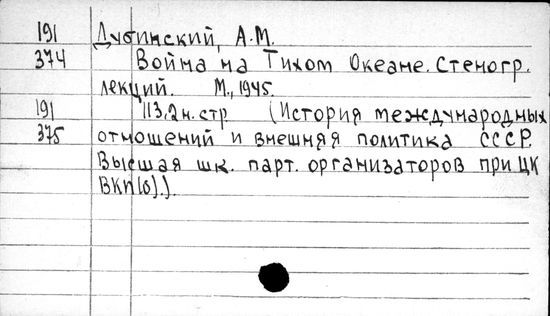 191 Дубинский, А.М.
374 Война на Тихом Океане. Стеногр.
лекций. М., 1945.
191 113,2н.стр (История международных
375 отношений и внешняя политика СССР.
Высшая шк. парт. организаторов при ЦК
ВКП(б).).